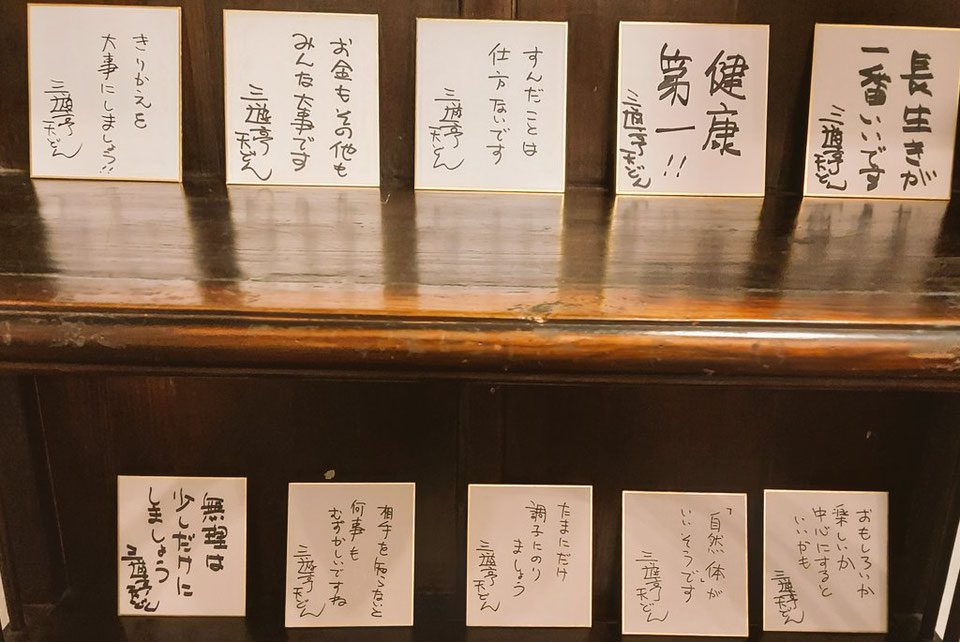 長生きが
一番いいです
三遊亭天どん
健康
第一!!
三遊亭天どん
すんだことは
仕方ないです
三遊亭天どん
お金もその他も
みんな大事です
三遊亭天どん
きりかえを
大事にしましょう!!
三遊亭天どん
おもしろいか
楽しいか
中心にすると
いいかも
三遊亭天どん
「自然体」が
いいそうです
三遊亭天どん
たまにだけ
調子にのり
ましょう
三遊亭天どん
相手を知らないと
何事も
むずかしいですね
三遊亭天どん
無理は
少しだけに
しましょう
三遊亭天どん